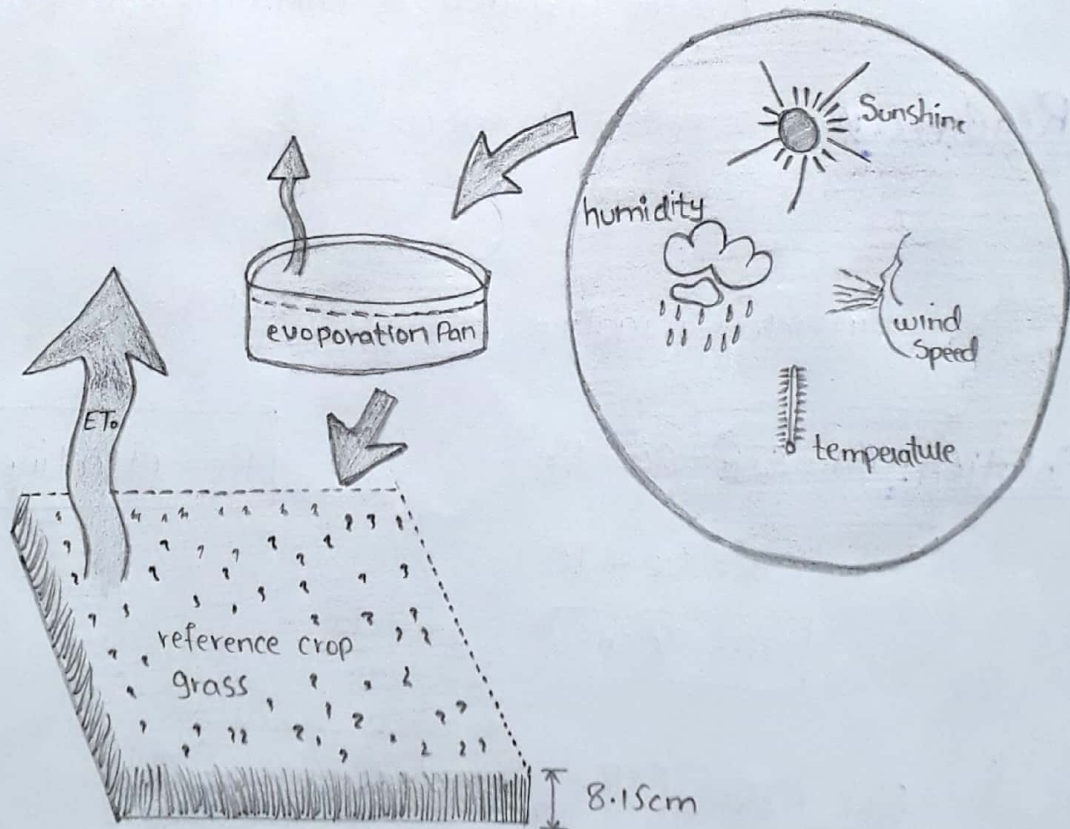 Sunshine
humidity
wind
speed
temperature
evoporation Pan
ETo
reference crop
grass
8.15cm